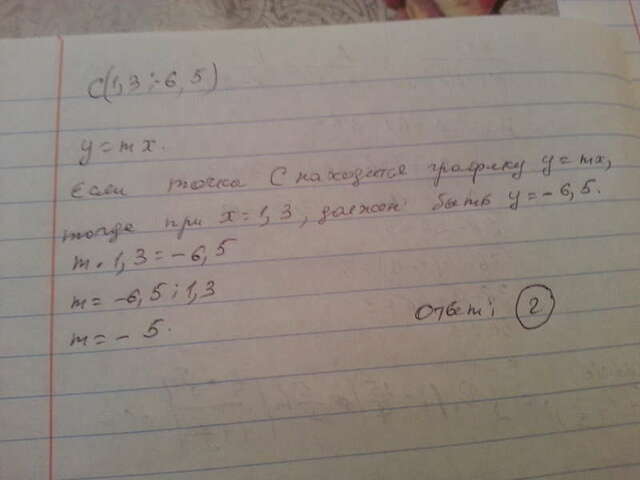 C(1,3 ; -6,5)
y = mx.
Если точка C находится графику y = mx,
тогда при x = 1,3, должен быть y = -6,5.
m · 1,3 = -6,5
m = -6,5 : 1,3
m = - 5.
Ответ: 2